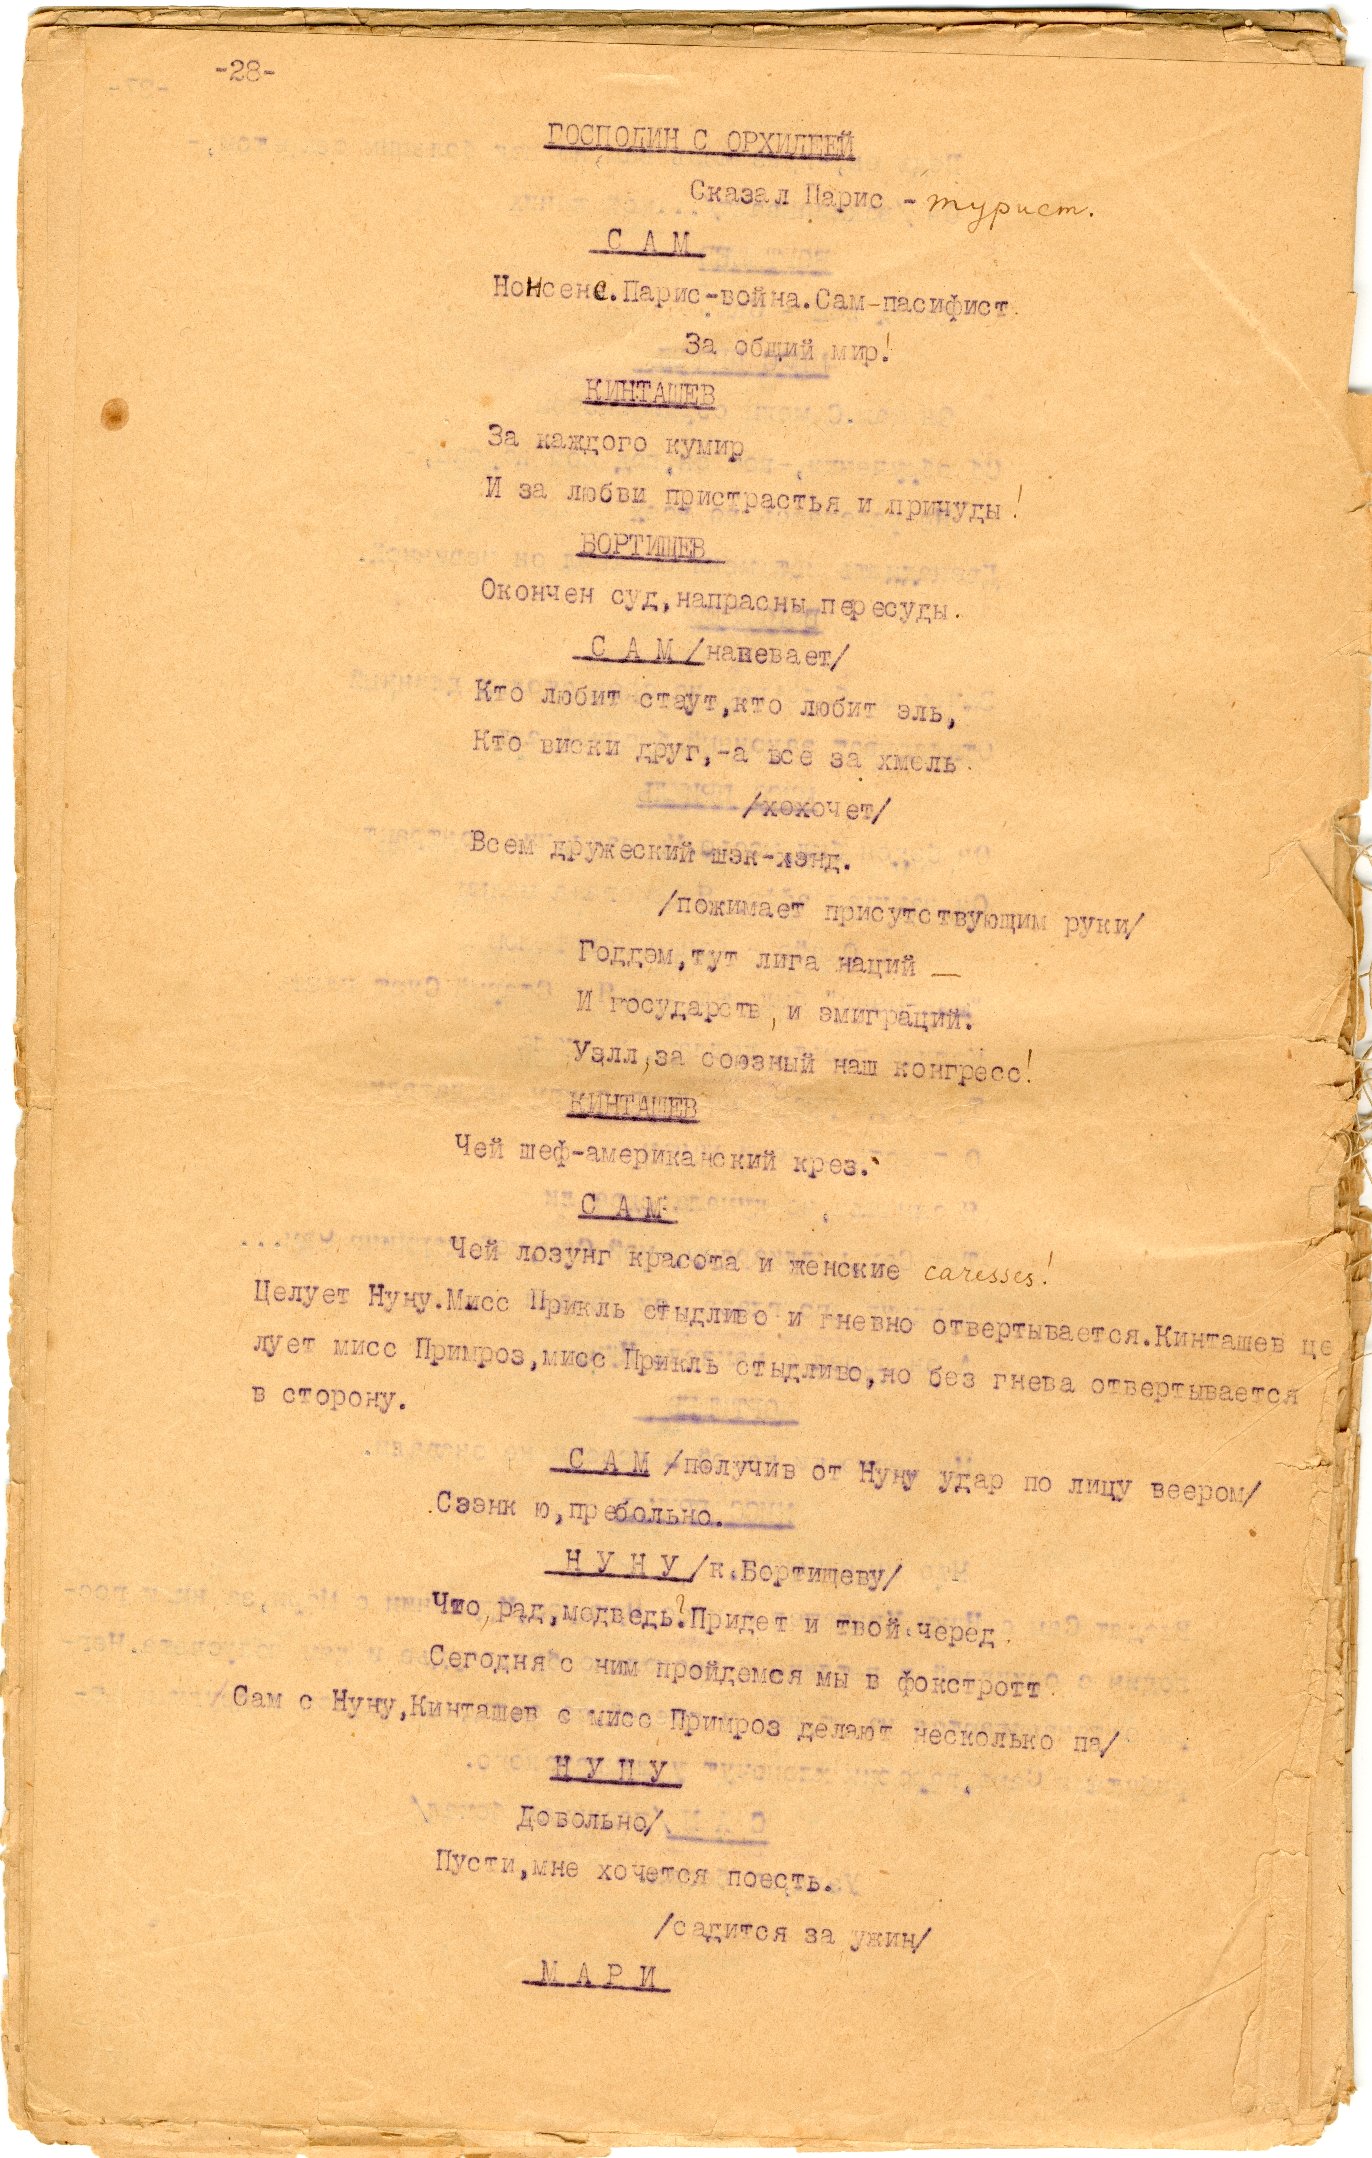 -28-
ГОСПОДИН С ОРХИДЕЕЙ
Сказал Парис - турист.
С А М
Нонсенс.Парис-война.Сам-пасифист.
За общий мир!
КИНТАШЕВ
За каждого кумир
И за любви пристрастья и причуды!
БОРТИЩЕВ
Окончен суд,напрасны пересуды.
С А М /напевает/
Кто любит стаут,кто любит эль,
Кто виски друг,-а все за хмель.
/хохочет/
Всем дружеский шэк-хэнд.
/пожимает присутствующим руки/
Годдэм,тут лига наций —
И государств, и эмиграций.
Уэлл,за союзный наш конгресс!
КИНТАШЕВ
Чей шеф-американский крез.
С А М
Чей лозунг красота и женские caresses!
Целует Нуну.Мисс Прикль стыдливо и гневно отвертывается.Кинташев це
лует мисс Примроз,мисс Прикль стыдливо,но без гнева отвертывается
в сторону.
С А М /получив от Нуну удар по лицу веером/
Сэенк ю,пребольно.
Н У Н У /к.Бортищеву/
Что,рад,медведь?Придет и твой черед.
Сегодня с ним пройдемся мы в фокстротт.
/Сам с Нуну,Кинташев с мисс Примроз делают несколько па/
Н У Н У
Довольно/
Пусти,мне хочется поесть.
/садится за ужин/
М А Р И